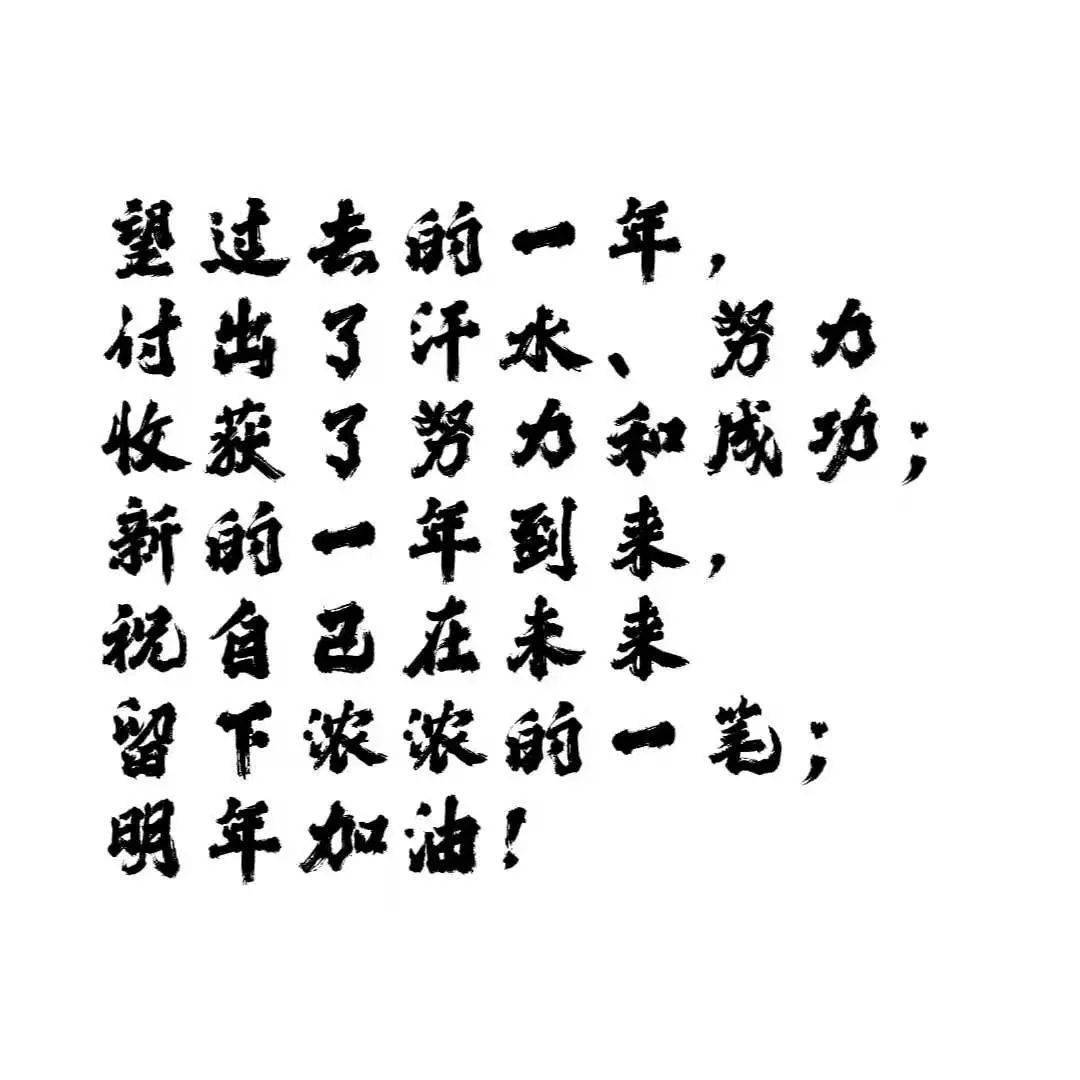 望过去的一年，
付出了汗水、努力
收获了努力和成功；
新的一年到来，
祝自己在未来
留下浓浓的一笔；
明年加油！